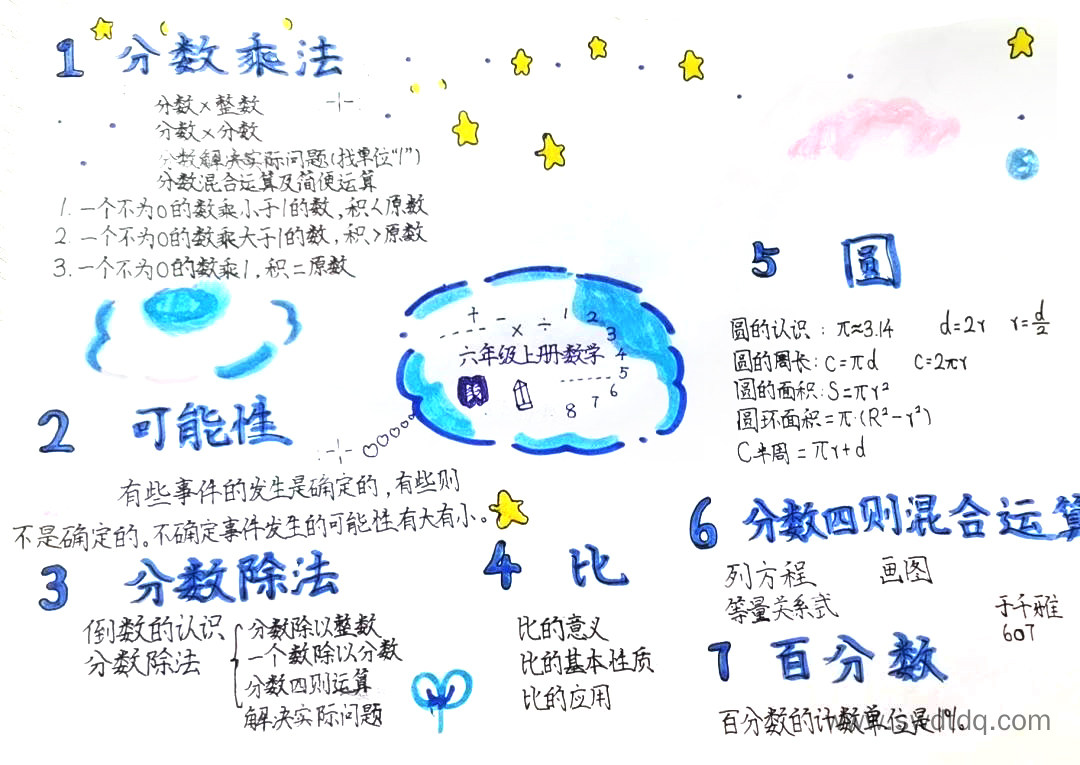 1 分数乘法
分数×整数
分数×分数
分数解决实际问题(找单位“1”)
分数混合运算及简便运算
1. 一个不为0的数乘小于1的数,积<原数
2. 一个不为0的数乘大于1的数,积>原数
3. 一个不为0的数乘1,积=原数
+ - × ÷ 1 2 3 4 5 6 7 8
六年级上册数学
2 可能性
有些事件的发生是确定的,有些则
不是确定的。不确定事件发生的可能性有大有小。
3 分数除法
倒数的认识
分数除法
分数除以整数
一个数除以分数
分数四则运算
解决实际问题
4 比
比的意义
比的基本性质
比的应用
5 圆
圆的认识: π≈3.14 d=2r r=d/2
圆的周长: C=πd C=2πr
圆的面积: S=πr²
圆环面积=π·(R²-r²)
C半周=πr+d
6 分数四则混合运算
列方程 画图
等量关系式
于千雅
607
7 百分数
百分数的计数单位是1%。